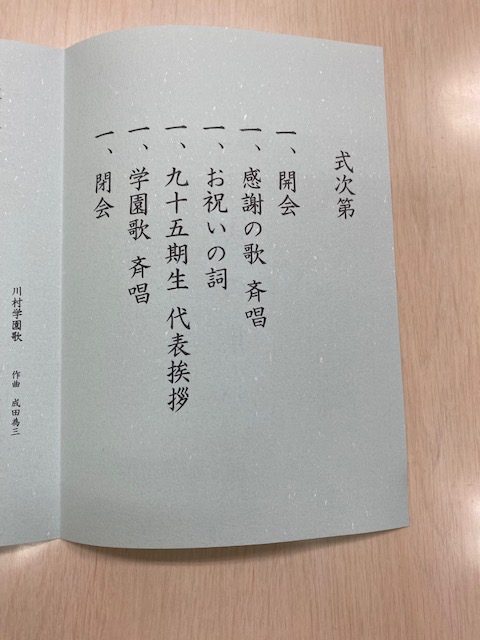 式次第
一、開会
一、感謝の歌 斉唱
一、お祝いの詞
一、九十五期生 代表挨拶
一、学園歌 斉唱
一、閉会
川村学園歌
作曲 成田為三